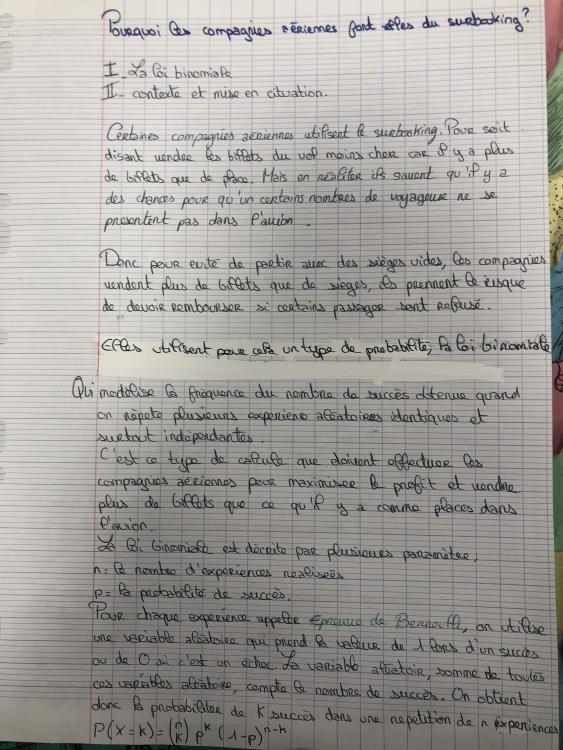 Pourquoi les compagnies aériennes font elles du surbooking?
I - La loi binomiale
II - contexte et mise en cituation.
Certaines compagnies aériennes utilisent le surbooking. Pour soit
disant vendre les billets du vol moins cher car il y a plus
de billets que de place. Mais en réaliter ils savent qu'il y a
des chances pour qu'un certains nombres de voyageur ne se
presentent pas dans l'avion.
Donc pour evité de partir avec des sièges vides, les compagnies
vendent plus de billets que de sieges, ils prennent le risque
de devoir rembourser si certains passager sont refusé.
Elles utilisent pour cela un type de probabilité, la loi binomiale
Qui modélise la fréquence du nombre de succès obtenue quand
on répète plusieurs experiene aléatoires identiques et
surtout indépendantes.
C'est ce type de calcule que doivent effectuer les
compagnies aériennes pour maximiser le profit et vendre
plus de billets que ce qu'il y a comme places dans
l'avion.
La loi binomiale est décrite par plusieurs paramètre,
n = le nombre d'experiences realisees
p = la probabilité de succès.
Pour chaque experience appeler Epreuve de Bernoulli, on utilise
une variable aléatoire qui prend la valeur de 1 lors d'un succès
ou de 0 si c'est un échec. La variable aléatoir, somme de toutes
ces variables aléatoire, compte le nombre de succès. On obtient
donc la probabilitee de K succès dans une repetition de n experiences
P(X=k) = (n k) p^k (1-p)^n-k